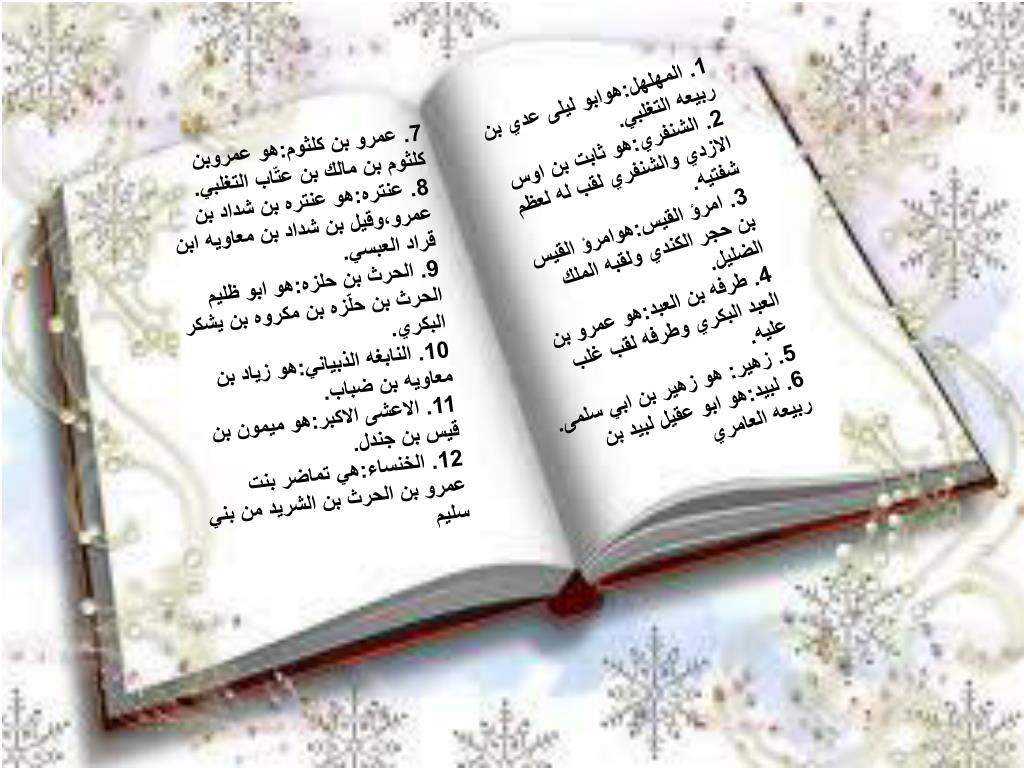 1. المهلهل:هوابو ليلى عدي بن
ربيعه التغلبي.
2. الشنفري:هو ثابت بن اوس
الازدي والشنفري لقب له لعظم
شفتيه.
3. امرؤ القيس:هوامرؤ القيس
بن حجر الكندي ولقبه الملك
الضليل.
4. طرفه بن العبد:هو عمرو بن
العبد البكري وطرفه لقب غلب
عليه.
5. زهير: هو زهير بن ابي سلمى.
6. لبيد:هو ابو عقيل لبيد بن
ربيعه العامري
7. عمرو بن كلثوم:هو عمروبن
كلثوم بن مالك بن عتّاب التغلبي.
8. عنتره:هو عنتره بن شداد بن
عمرو،وقيل بن شداد بن معاويه ابن
قراد العبسي.
9. الحرث بن حلزه:هو ابو ظليم
الحرث بن حلّزه بن مكروه بن يشكر
البكري.
10. النابغه الذبياني:هو زياد بن
معاويه بن ضباب.
11. الاعشى الاكبر:هو ميمون بن
قيس بن جندل.
12. الخنساء:هي تماضر بنت
عمرو بن الحرث بن الشريد من بني
سليم